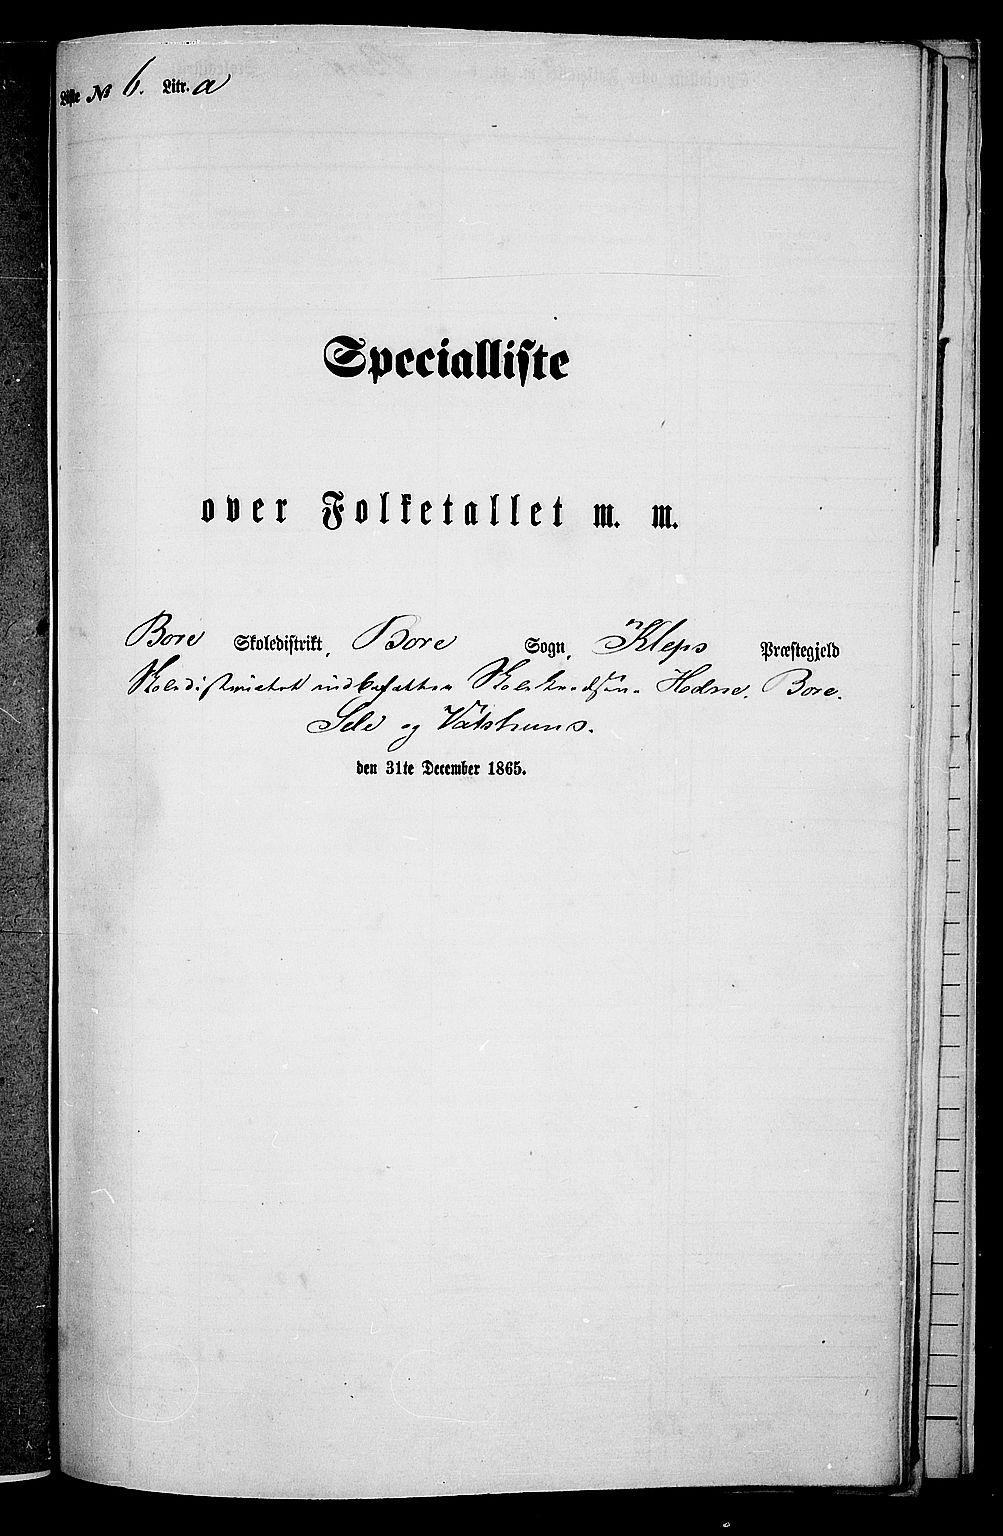 Liste № 6. Litr. a
Specialliste
over Folketallet m. m.
Bore Skoledistrikt, Bore Sogn, Kleps Præstegjeld
Skoledistriktet indbefatter Hodne. Bore.
Sele og
den 31te December 1865.